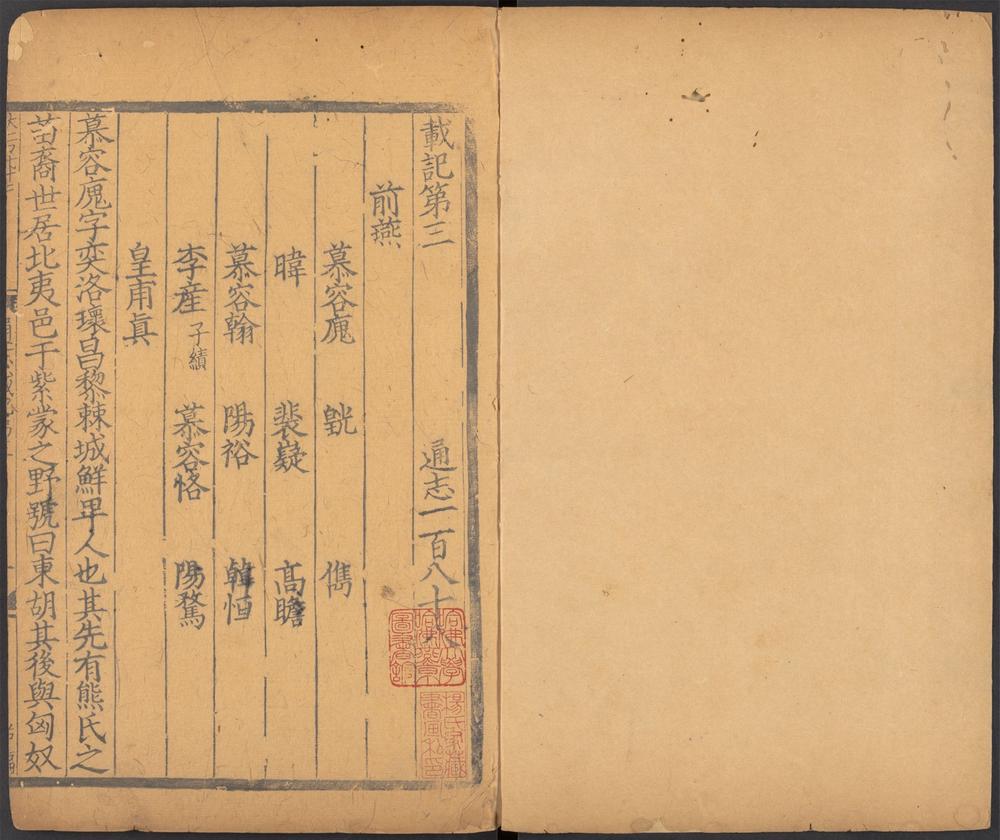 載記第三 通志一百八十八
前燕
慕容廆 皝 儁
暐 裴嶷 高瞻
慕容翰 陽裕 韓恒
李産 子績 慕容恪 陽騖
皇甫眞
慕容廆字奕洛瓌昌黎棘城鮮卑人也其先有熊氏之
苗裔世居北夷邑于紫蒙之野號曰東胡其後與匈奴